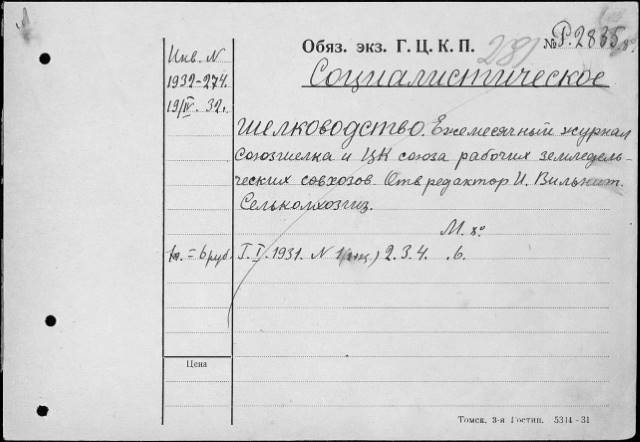 Обяз. экз. Г. Ц. К. П.
281
№ Р.2835 8°
Инв. N
1932-274.
19/IV. 32.
Социалистическое
шелководство. Ежемесячный журнал
Союзшелка и ЦК союза рабочих земледель-
ческих совхозов. Отв редактор И.
Сельколхозгиз.
М. 8°
6 руб
Т. I. 1931. N 2. 3. 4. .6.
Цена
Томск. 3-я Гостип. 5314-31